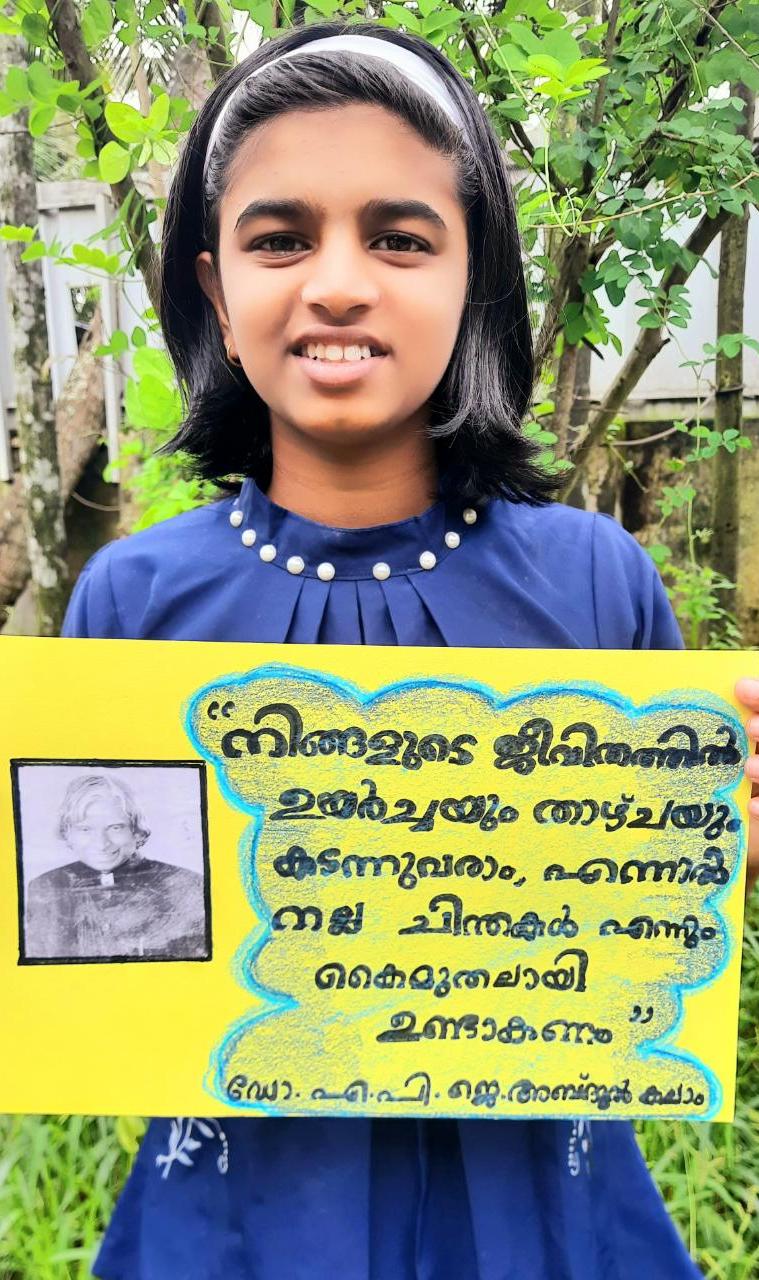 “നിങ്ങളുടെ ജീവിതത്തിൽ
ഉയർച്ചയും താഴ്ചയും
കടന്നുവരാം, എന്നാൽ
നല്ല ചിന്തകൾ എന്നും
കൈമുതലായി
ഉണ്ടാകണം”
ഡോ. എ.പി. ജെ.അബ്ദുൽ കലാം